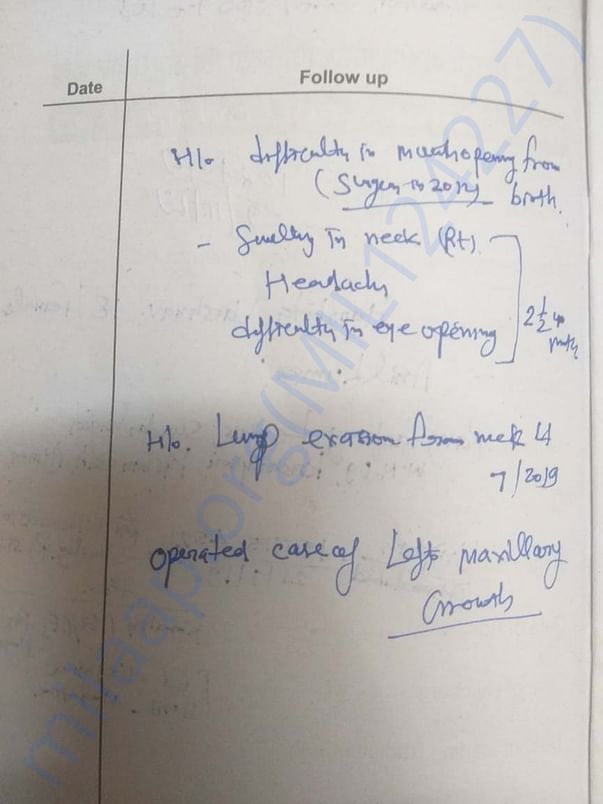 Date
Follow up
H/o. difficulty in mouth opening from
(Surgery in 2012) birth.
- Swelling in neck (Rt).
Headache
difficulty in eye opening
2 1/2
H/o. Lump excision from neck
7/2019
operated case of Left maxillary
Growth
milaap.org(MIL124227)